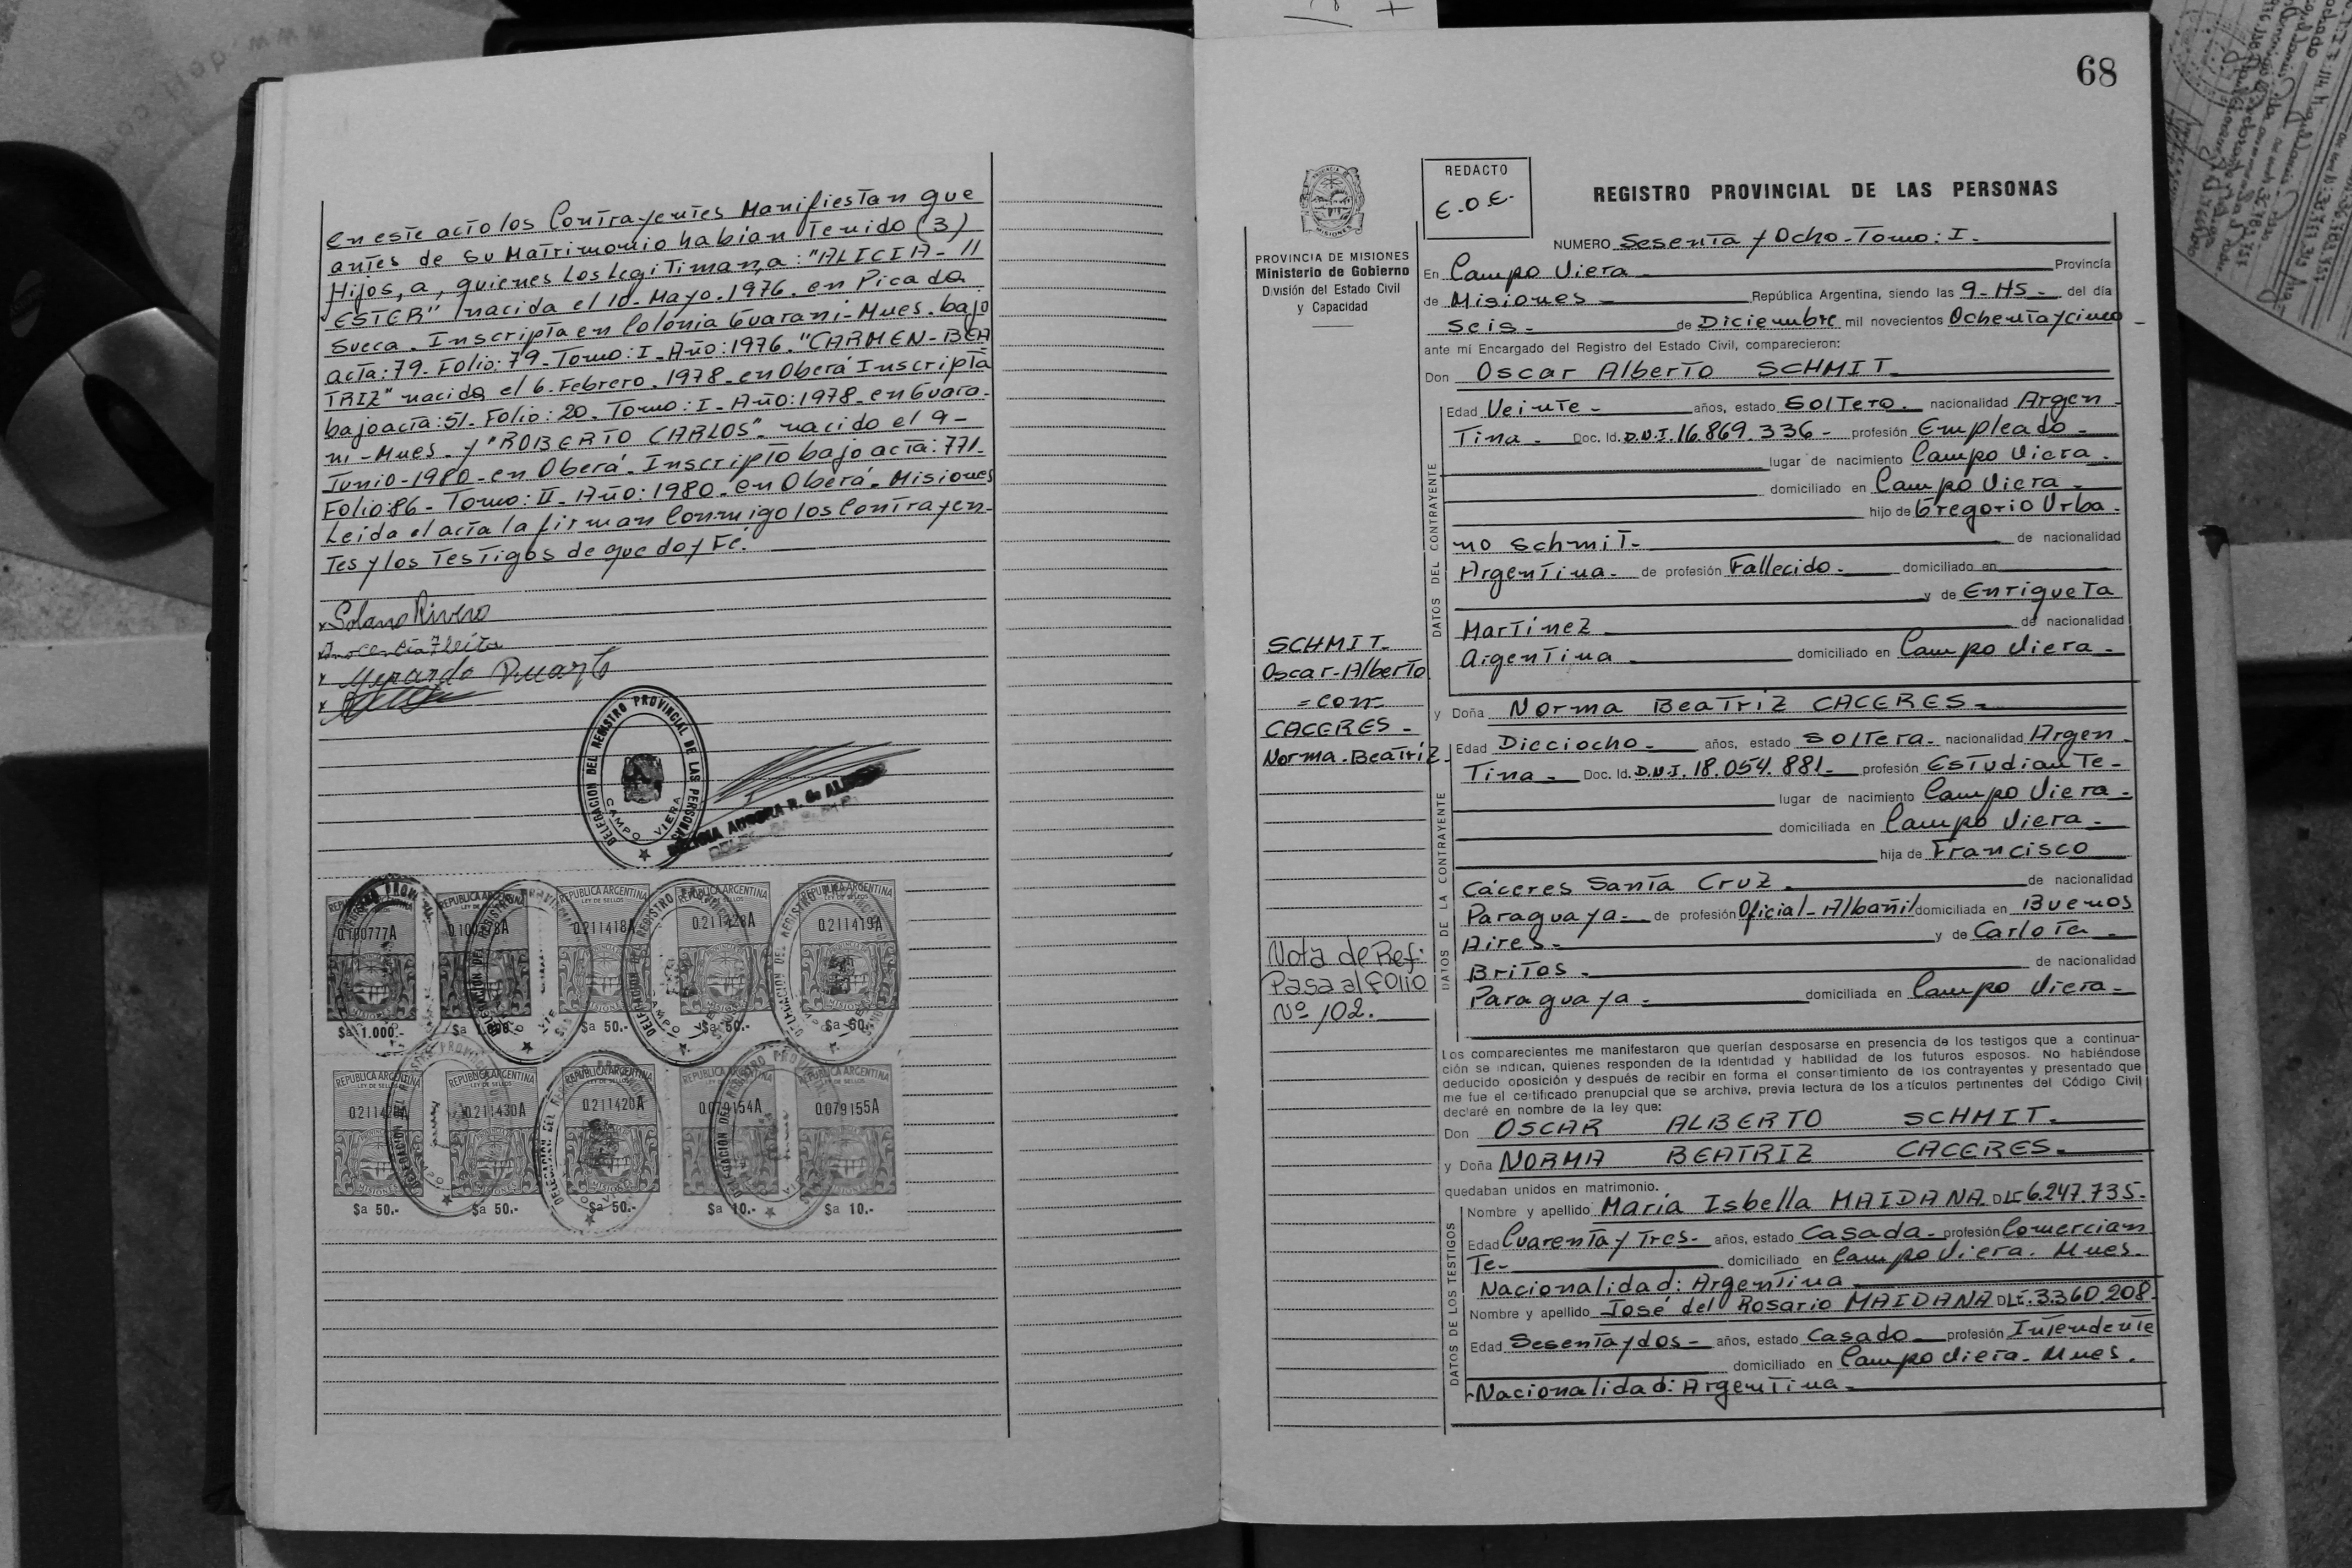 en este acto los Contrayentes Manifiestan que
antes de su Matrimonio habian Tenido (3)
Hijos, a, quienes Los Legitiman, a: "ALICIA-
ESTER" nacida el 10-Mayo.1976. en Picada
Sueca. Inscripta en Colonia Guarani-Mnes. bajo
acta: 79. Folio: 79. Tomo: I. Año: 1976. "CARMEN-BEA
TRIZ" nacida el 6. Febrero. 1978. en Oberá Inscripta
bajo acta: 51. Folio: 20. Tomo: I. Año: 1978. en Guara-
ni-Mnes. y "ROBERTO CARLOS". nacido el 9-
Junio-1980. en Oberá. Inscripto bajo acta: 771.
Folio: 86- Tomo: II- Año: 1980. en Oberá. Misiones
Leida el acta la firman Conmigo los Contrayen-
tes y los Testigos de que doy Fé.
x Solano Rivero
x Inocencia Fleita
x Duarte
DELEGACION DEL REGISTRO PROVINCIAL DE LAS PERSONAS
CAMPO VIERA
REPUBLICA ARGENTINA
LEY DE SELLOS
0.211418A 0.211419A
$a 1.000.- $a 50.- $a 50.-
REPUBLICA ARGENTINA
LEY DE SELLOS
0.211430A 0.211420A 0.079154A 0.079155A
$a 50.- $a 50.- $a 50.- $a 10.- $a 10.-
68
PROVINCIA DE MISIONES
Ministerio de Gobierno
División del Estado Civil
y Capacidad
REDACTO
E.O.E.
REGISTRO PROVINCIAL DE LAS PERSONAS
NUMERO Sesenta y Ocho-Tomo: I-
En Campo Viera Provincia
de Misiones República Argentina, siendo las 9-HS- del día
Seis- de Diciembre mil novecientos Ochenta y cinco
ante mí Encargado del Registro del Estado Civil, comparecieron:
Don Oscar Alberto SCHMIT
DATOS DEL CONTRAYENTE
Edad Veinte- años, estado SOLTERO- nacionalidad Argen-
Tina- Doc. Id. D.N.I. 16.869.336- profesión Empleado-
lugar de nacimiento Campo Viera-
domiciliado en Campo Viera-
hijo de Gregorio Urba-
no Schmit- de nacionalidad
Argentina- de profesión Fallecido- domiciliado en
y de Enriqueta
Martinez de nacionalidad
Argentina domiciliado en Campo Viera-
SCHMIT-
Oscar-Alberto
=con=
CACERES-
Norma-Beatriz
y Doña Norma Beatriz CACERES-
DATOS DE LA CONTRAYENTE
Edad Dieciocho- años, estado SOLTERA- nacionalidad Argen-
Tina- Doc. Id. D.N.I. 18.054.881- profesión Estudiante-
lugar de nacimiento Campo Viera-
domiciliada en Campo Viera-
hija de Francisco
Cáceres Santa Cruz- de nacionalidad
Paraguaya- de profesión Oficial-Albañil domiciliada en Buenos
Aires- y de Carlota-
Britos- de nacionalidad
Paraguaya- domiciliada en Campo Viera-
Nota de Ref:
Pasa al Folio
Nº 102.
Los comparecientes me manifestaron que querían desposarse en presencia de los testigos que a continua-
ción se indican, quienes responden de la identidad y habilidad de los futuros esposos. No habiéndose
deducido oposición y después de recibir en forma el consentimiento de los contrayentes y presentado que
me fue el certificado prenupcial que se archiva, previa lectura de los artículos pertinentes del Código Civil
declaré en nombre de la ley que:
Don OSCAR ALBERTO SCHMIT-
y Doña NORMA BEATRIZ CACERES-
quedaban unidos en matrimonio.
DATOS DE LOS TESTIGOS
Nombre y apellido María Isbella MAIDANA 6.247.735-
Edad Cuarenta y Tres- años, estado Casada- profesión Comercian
Te- domiciliado en Campo Viera. Mnes-
Nacionalidad: Argentina
Nombre y apellido José del Rosario MAIDANA 3.360.208-
Edad Sesenta y dos- años, estado Casado- profesión Intendente
domiciliado en Campo Viera- Mnes.
-Nacionalidad: Argentina-